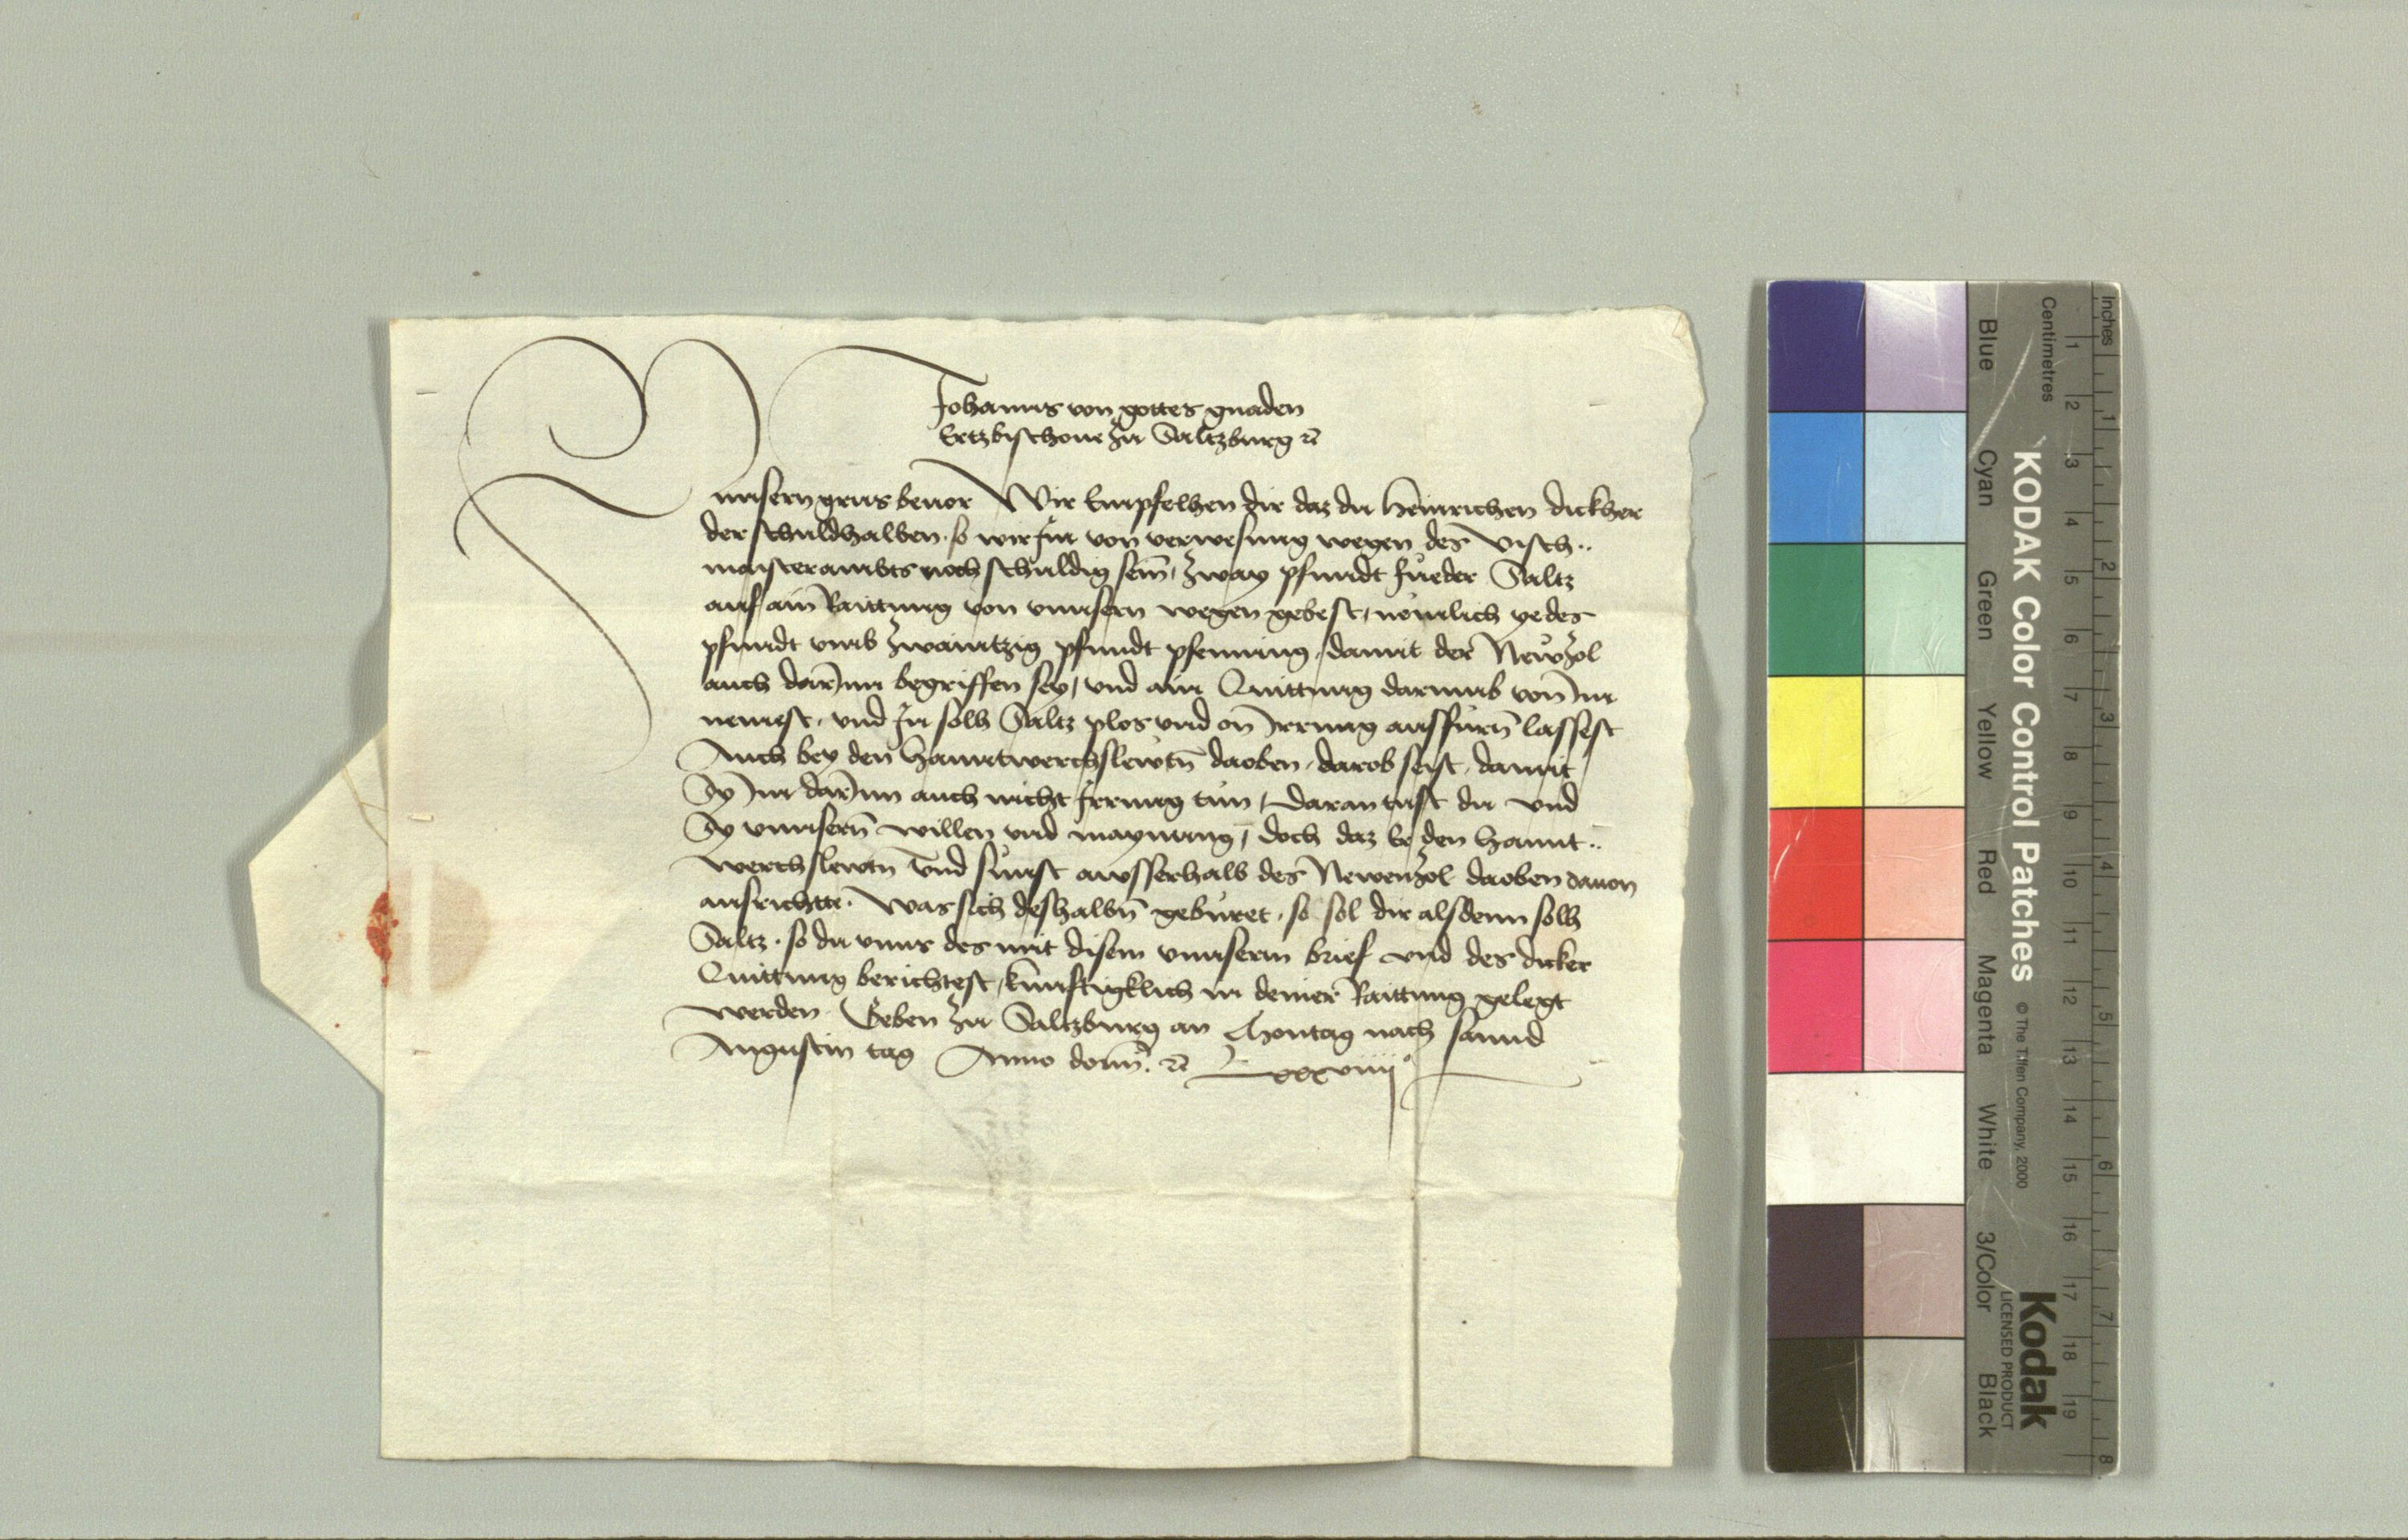 Johanns von gottes gnaden
Ertzbischoue zu Saltzburg ꝛc
Vnnsern grus beuor Wir Empfelhen dir daz du Heinrichen dickher
der schuldhalben · so wir Im von verwesung wegen des Visch..
maisterambts noch schuldig sein, zway pfundt fueder Saltz
auf ain Raittung von vnnsern wegen gebest, nemlich yedes
pfundt vmb zwaintzig pfundt pfenning, damit der Newzol
auch darInn begriffen sey, vnd ain Quittung darumb von Im
nemest, vnd Im solh Saltz plos vnd on Irrung ausfürn lassest
Auch bey den hanntwerchslewtn daoben, darob seist, damit
Sy Im darInn auch nicht Irrung tun, Daran tust du vnd
Sy vnnsern willen vnd maynung, doch daz Er den hannt..
werchslewtn vnd sunst ausserhalb des Newenzol daoben dauon
ausrichte. Was sich deshalbn geburet, so sol dir alsdenn solh
Saltz, so du vnns des mit disem vnnserm brief vnd des dicker
Quittung berichtest, kunftigklich in deiner Raittung gelegt
werden. Geben zu Saltzburg an Montag nach sannd
Augustin tag Anno domi. ꝛc Lxxxviiij°
KODAK Color Control Patches © The Tiffen Company, 2000
Kodak
LICENSED PRODUCT
Blue Cyan Green Yellow Red Magenta White 3/Color Black
Centimetres 1 2 3 4 5 6 7 8 9 10 11 12 13 14 15 16 17 18 19
Inches 1 2 3 4 5 6 7 8